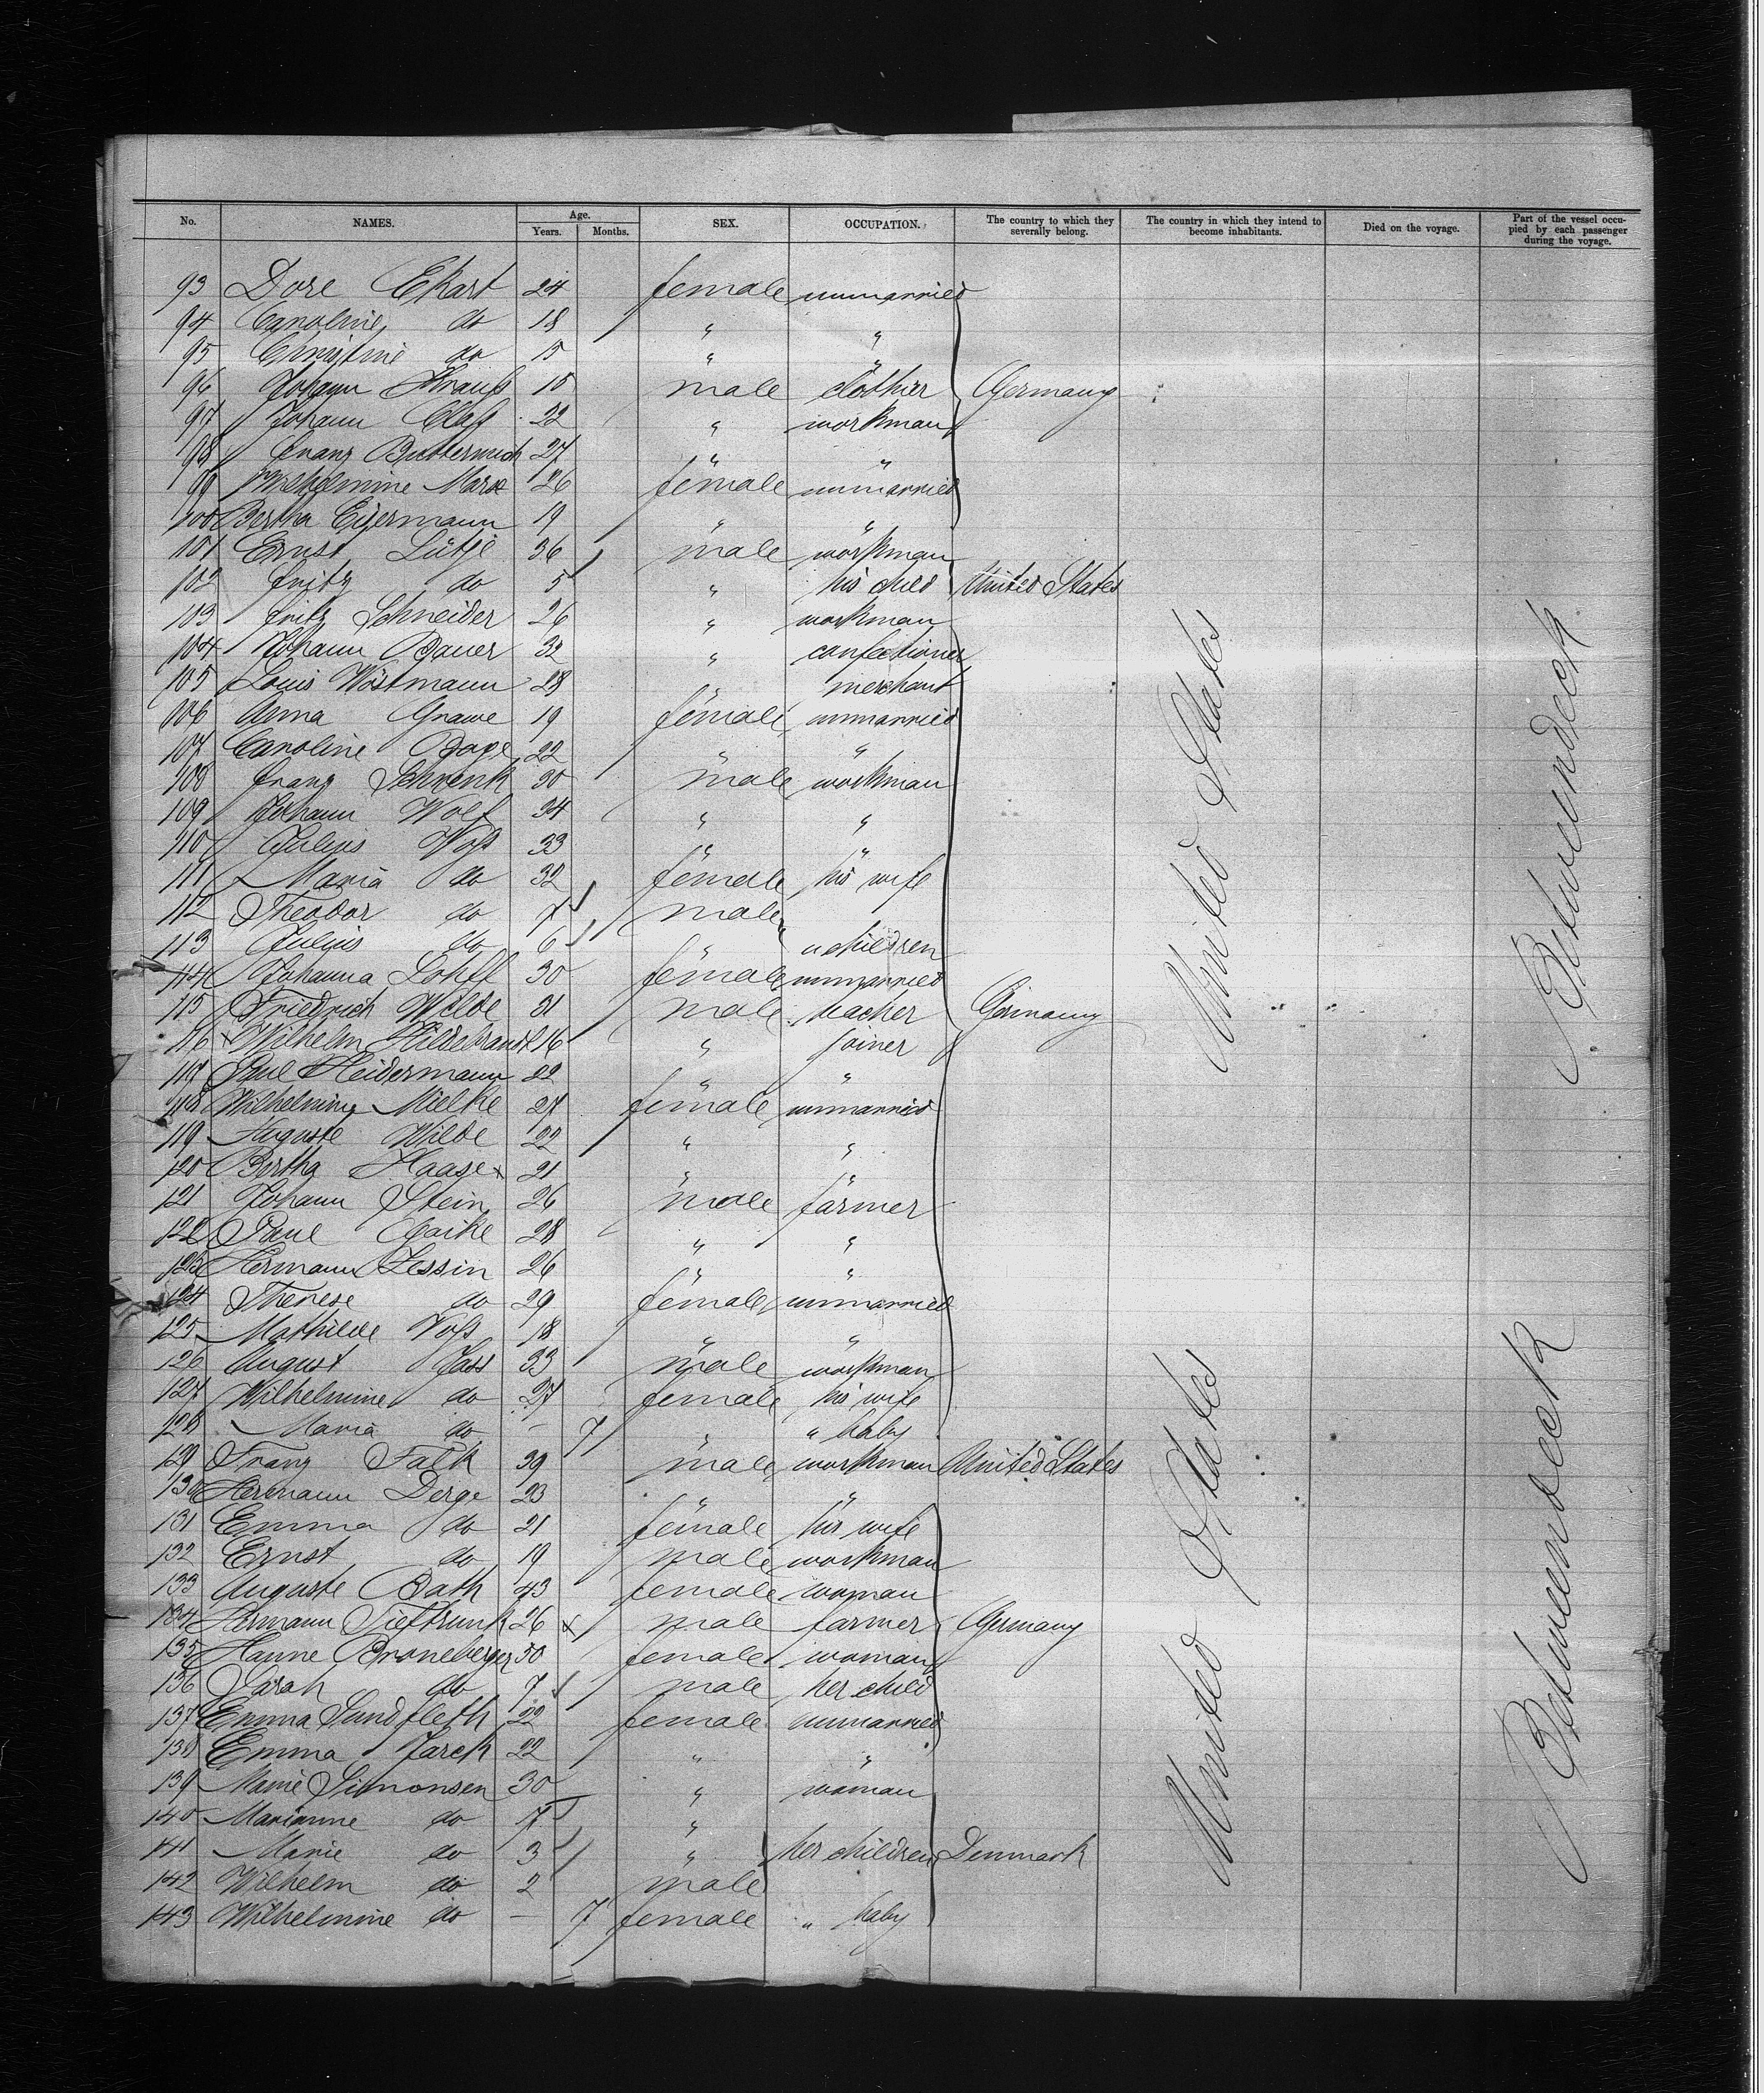 No. NAMES. Age. Years. Months. SEX. OCCUPATION. The country to which they severally belong. The country in which they intend to become inhabitants. Died on the voyage. Part of the vessel occupied by each passenger during the voyage.
93 Dore Ekart 24 female unmarried
94 Caroline do 18 " "
95 Christine do 15 " "
96 Johann Krauß 15 male clothier Germany
97 Johann Claß 22 " workman
98 Franz Butterwich 27 " "
99 Wilhelmine Marx 26 female unmarried
100 Bertha Eijermann 19 " "
101 Ernst Lütje 36 male workman
102 Fritz do 5 " his child United States
103 Fritz Schneider 26 " workman
104 Johann Bauer 32 " confectioner
105 Louis Wöstmann 28 " merchant
106 Anna Grawe 19 female unmarried
107 Caroline Boge 22 " "
108 Franz Schrenk 30 male workman
109 Johann Wolf 34 " "
110 Julius Voß 33 " "
111 Maria do 32 female his wife
112 Theodor do 7 male
113 Julius do 6 " " children
114 Johanna Lohff 30 female unmarried
115 Friedrich Wilde 21 male teacher Germany
116 x Wilhelm Hildebrandt 16 " joiner
117 Paul Heidermann 22 " "
118 Wilhelmine Mielke 27 female unmarried
119 Auguste Wilde 22 " "
120 Bertha Haase x 21 " "
121 Johann Stein 26 male farmer
122 Paul 28 " "
123 Hermann Lessin 26 " "
124 Therese do 29 female unmarried
125 Mathilde Voß 18 " "
126 August Jass 33 male workman
127 Wilhelmine do 27 female his wife
128 Maria do - 7 " " baby
129 Franz Falk 39 male workman United States
130 Hermann Derge 23 " "
131 Emma do 21 female his wife
132 Ernst do 19 male workman
133 Auguste Bath 43 female woman
134 Hermann Tieftrunk 26 x male farmer Germany
135 Hanne Broneberger 50 female woman
136 Sarah do 7 male her child
137 Emma Sundfleth 22 female unmarried
138 Emma Jarck 22 " "
139 Marie Simonsen 30 " woman
140 Marianne do 7 "
141 Marie do 3 " her children Denmark
142 Wilhelm do 2 male
143 Wilhelmine do - 7 female " baby
United States
Betweendeck
United States
Betweendeck